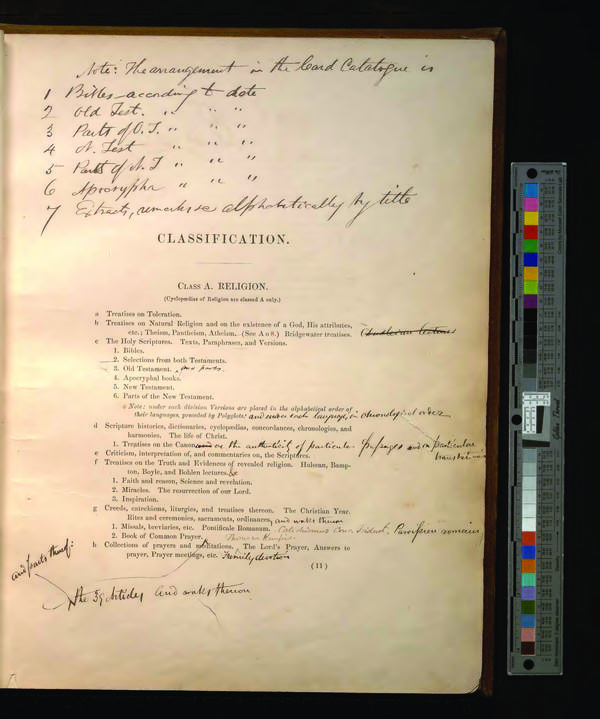 Note: The arrangement in the Card Catalogue is
1 Bibles according to date
2 Old Test. " " "
3 Parts of O.T. " " "
4 N. Test " " "
5 Parts of N.T " " "
6 Apocrypha " " "
7 Extracts, remarks &c alphabetically by title
CLASSIFICATION.
CLASS A. RELIGION.
(Cyclopædias of Religion are classed A only.)
a Treatises on Toleration.
b Treatises on Natural Religion and on the existence of a God, His attributes,
etc.; Theism, Pantheism, Atheism. (See A o 8.) Bridgewater treatises. (Dudleian lectures
c The Holy Scriptures. Texts, Paraphrases, and Versions.
1. Bibles.
2. Selections from both Testaments.
3. Old Testament. and parts.
4. Apocryphal books.
5. New Testament.
6. Parts of the New Testament.
Note: under each division Versions are placed in the alphabetical order of
their languages, preceded by Polyglots; and under each language, in chronological order
d Scripture histories, dictionaries, cyclopædias, concordances, chronologies, and
harmonies. The life of Christ.
1. Treatises on the Canon or the authenticity of particular passages and on particular
translations
e Criticism, interpretation of, and commentaries on, the Scriptures.
f Treatises on the Truth and Evidences of revealed religion. Hulsean, Bamp-
ton, Boyle, and Bohlen lectures, &c
1. Faith and reason, Science and revelation.
2. Miracles. The resurrection of our Lord.
3. Inspiration.
g Creeds, catechisms, liturgies, and treatises thereon. The Christian Year.
Rites and ceremonies, sacraments, ordinances, and works thereon
1. Missals, breviaries, etc. Pontificale Romanum.
2. Book of Common Prayer.
h Collections of prayers and meditations. The Lord's Prayer, Answers to
prayer, Prayer meetings, etc. Family devotion
(11)
and parts thereof:
the 39 Articles and works thereon